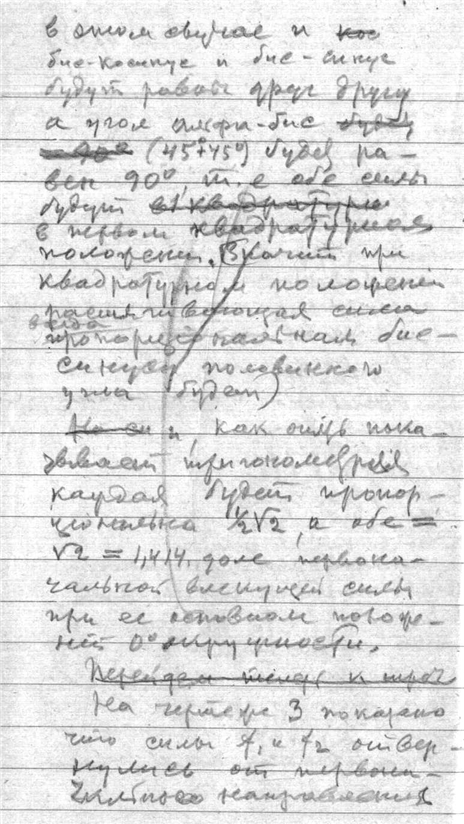 в этом случае и кос
бис-косинус и бис-синус
будут равны друг другу
а угол альфа-бис будет
= 90° (45°+45°) будет ра-
вен 90°, т.е обе силы
будут в квадратурно
в первом квадратурном
положении. Значит при
квадратурном положении
растягивающая сила
всегда
пропорциональная бис-
синусу половинного
угла будет)
и, как опять пока-
зывает тригонометрия
каждая будет пропор-
циональна ½√2, а обе =
√2 = 1,414 доле первона-
чальной влекущей силы
при ее основном положе-
нии 0° окружности.
Перейдем теперь к
На чертеже 3 показано
что силы f₁ и f₂ отвер-
нулись от первона-
чального направления